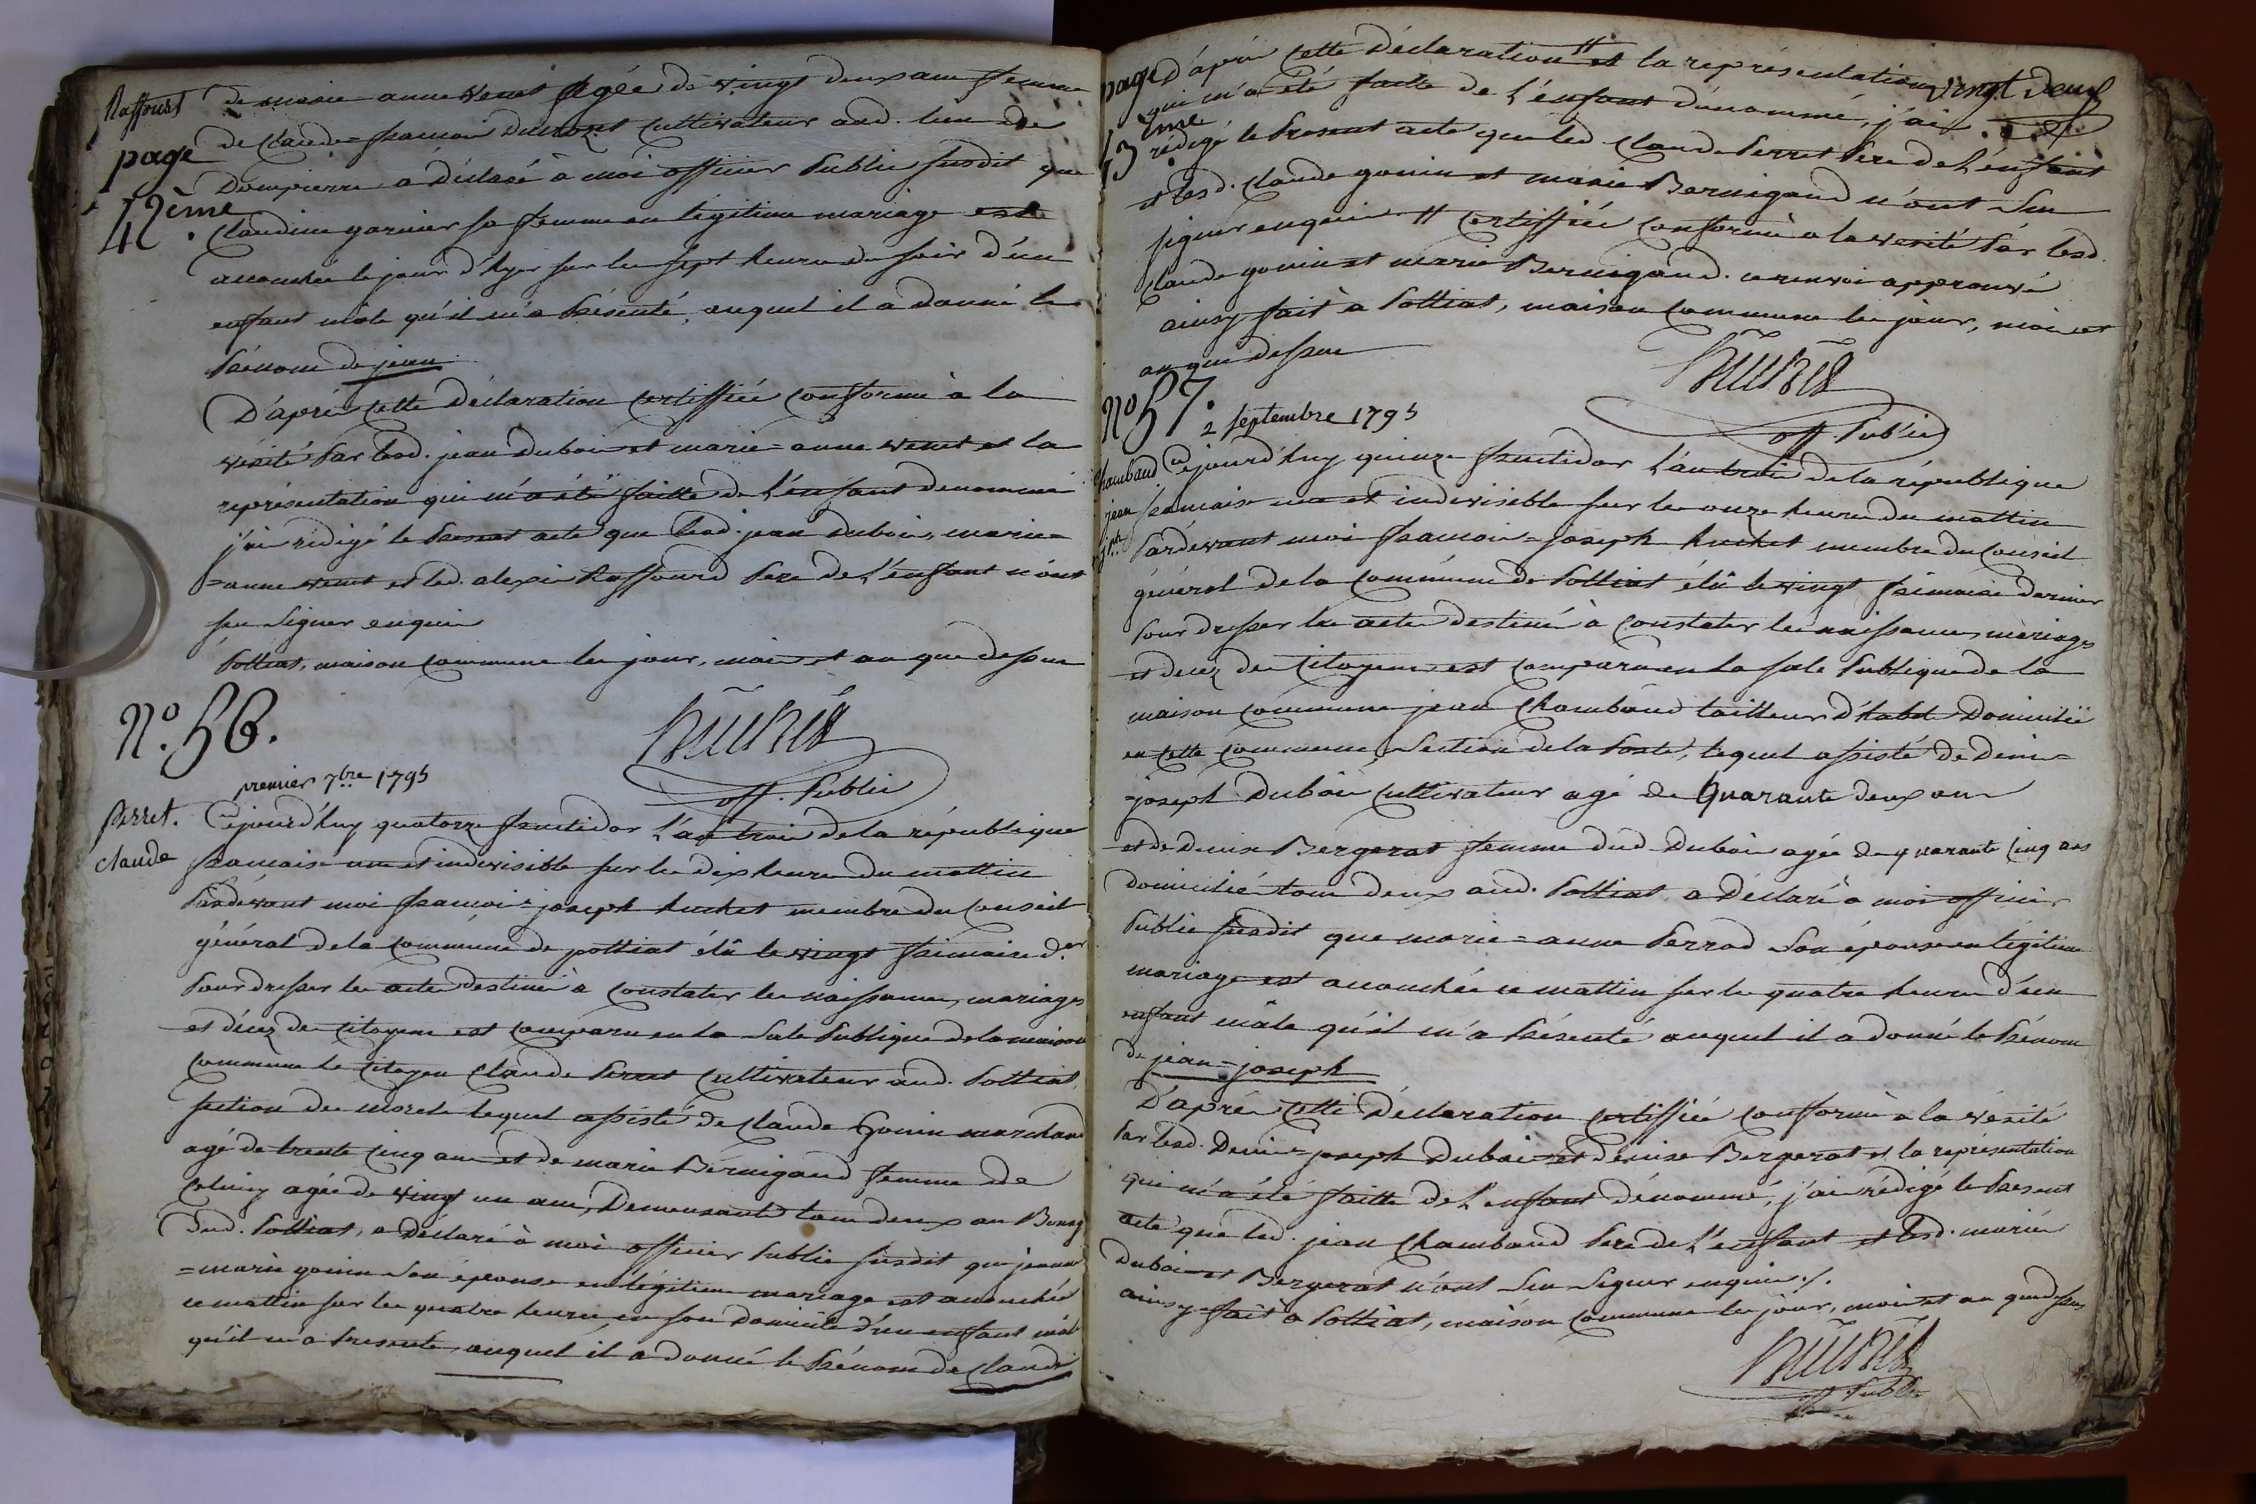 Raffourd
page
42ème
de marie anne venet agée de vingt deux ans femme
de Claude=francoi dumont cultivateur aud. lieu de
Dompierre a déclaré à moi officier Public susdit que
Claudine garnier sa femme en légitime mariage est
accouchée le jour d'hyer sur les sept heures du soir d'un
enfant mâle qu'il m'a présenté, auquel il a donné le
Prénom de jean
D'après cette déclaration certiffiée conforme à la
vérité par lesd. jean duboi et marie=anne venet et la
représentation qui m'a été faitte de l'enfant denommé
j'ai rédigé le present acte que lesd. jean duboi, marie=
=anne venet et led. alexi Raffourd Pere de l'enfant n'ont
su signer enquis
Polliat, maison commune les jour, moi et an que dessus
huchet
off. Public
No. 56.
premier 7bre 1795
Perret.
claude
Cejourd'huy quatorze fructidor l'an troi de la république
francaise une et indivisible sur les dix heures du mattin
Pardevant moi francoi=joseph huchet membre du Conseil
général de la commune de polliat élû le vingt frimaire d.er
Pour dresser les actes destiné à constater les naissances, mariages
et décez des citoyens est comparu en la sale Publique de la maison
commune le citoyen Claude Perret cultivateur aud. Polliat,
section des morel lequel assisté de Claude Gonin marchand
agé de trente cinq ans et de marie Bernigaud femme de
agée de vingt un ans, demeurants tous deux au Bourg
dud. Polliat, a déclaré à moi officier Public susdit que jeanne
=marie gonin son épouse en légitime mariage est accouchée
ce mattin sur les quatre heures, en son domicile d'un enfant mâle
qu'il m'a presenté, auquel il a donné le Prénom de Claude
page
43
ème
vingt deux
d'après cette déclaration # et la représentation
qui m'a été faitte de l'enfant dénommé, j'ai
rédigé le Present acte que led. Claude Perret Pere de l'enfant
et lesd. Claude gonin et marie Bernigaud n'ont sçu
signer enquis # certiffiée conforme à la vérité par lesd.
Claude gonin et marie Bernigaud. ce renvoi approuvé
ainsy fait à Polliat, maison commune les jour, moi et
an que dessus
huchet
off. Public
No 57.
2 septembre 1795
Chambaud
jean
jph
Cejourd'huy quinze fructidor l'an troi de la république
francaise une et indivisible sur les onze heures du mattin
Pardevant moi francoi=joseph huchet membre du Conseil
général de la commune de Polliat élû le vingt frimaire dernier
Pour dresser les actes destiné à constater les naissances, mariages
et decez des citoyens est comparu en la sale Publique de la
maison commune jean Chambaud tailleur d'habit Domicilié
en cette commune, section de la Poste, lequel assisté de Deni=
=joseph Duboi cultivateur agé de Quarante deux ans
et de Denise Bergerat femme dud Duboi agée de quarante cinq ans
domicilié tous deux aud. Polliat, a déclaré à moi officier
Public susdit que marie=anne Perrad son épouse en légitime
mariage est accouchée ce mattin sur les quatre heures d'un
enfant mâle qu'il m'a Présenté auquel il a donné le Prénom
de jean=joseph
D'après cette déclaration certiffiée conforme à la vérité
Par lesd. Deni=joseph Duboi et denise Bergerat et la représentation
qui m'a été faitte de l'enfant dénommé, j'ai rédigé le Present
acte que led. jean Chambaud Pere de l'enfant et lesd. mariés
Duboi et Bergerat n'ont sçu signer enquis ./.
ainsy fait à Polliat, maison commune les jour, moi et an que dessus
huchet
off Public